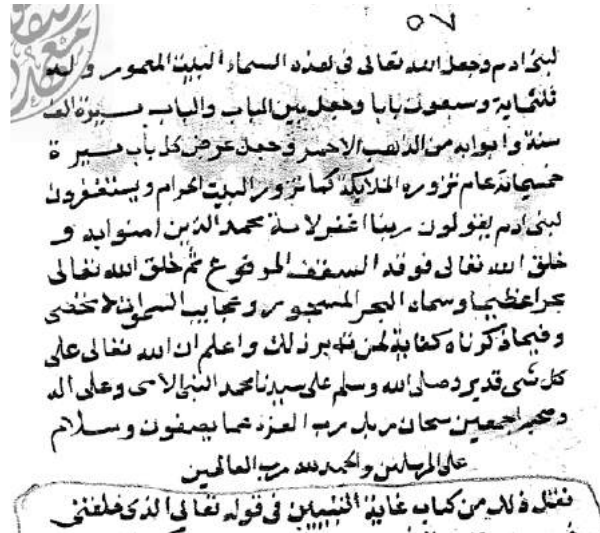 ٥٧
لبنى ادم وجعل الله تعالى فى هذه السماء البيت المعمور وله
ثلثماية وسبعون بابا وجعل بين الباب والباب مسيرة الف
سنة وابوابه من الذهب الاحمر وجعل عرض كل باب مسيرة
خمسمائة عام تزوره الملايكة كما تزور البيت الحرام ويستغفرون
لبنى ادم يقولون ربنا اغفر لامة محمد الذين امنوا به و
خلق الله تعالى فوقه السقف المرفوع ثم خلق الله تعالى
بحرا عظيما وسماه البحر المسجور وعجايب السموات لا تحصى
وفيما ذكرناه كفاية لمن تدبر ذلك واعلم ان الله تعالى على
كل شى قدير وصلى الله وسلم على سيدنا محمد النبى الامى وعلى اله
وصحبه اجمعين سبحان ربك رب العزة عما يصفون وسلام
على المرسلين والحمد لله رب العالمين
نقتل ذلك من كتاب غاية فى قوله تعالى الذى خلقنى